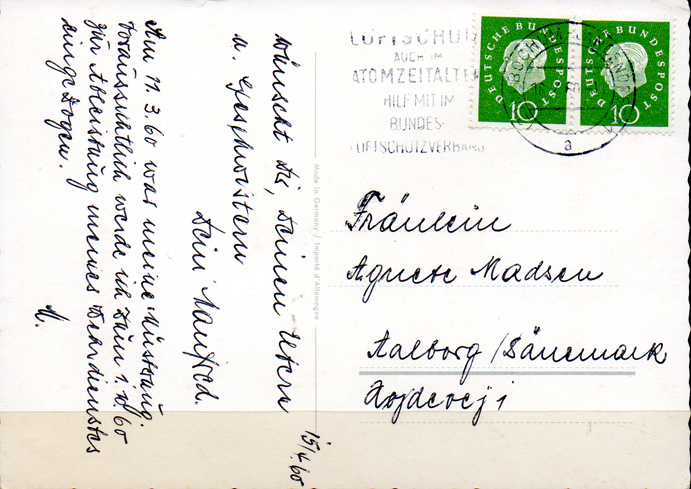 wünscht Dir, Deinen Eltern
u. Geschwistern
Dein Manfred.
15/4.60
Am 11.3.60 war meine Musterung.
Voraussichtlich werde ich zum 1.10.60
zur Ableistung meines Wehrdienstes
eingezogen.
M.
Made in Germany / Importé d'Allemagne
LUFTSCHUTZ
AUCH IM
ATOMZEITALTER
HILF MIT IM
BUNDES-
LUFTSCHUTZVERBAND
BOCHUM-LANGENDREER
a
DEUTSCHE BUNDESPOST
10
DEUTSCHE BUNDESPOST
10
Fräulein
Agnete Madsen
Aalborg / Dänemark
Hojdevej 1